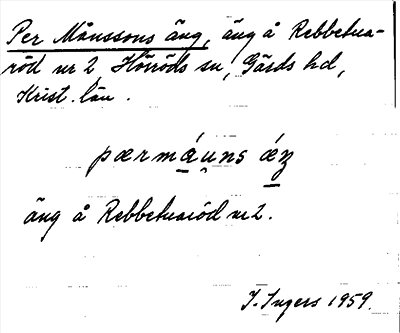 Per Månssons äng, äng å Rebbetua-
röd nr 2, Hörröds sn, Gärds hd,
Krist. län.
pærmáu̯ns áŋ
äng å Rebbetuaröd nr 2.
I. Ingers 1959.